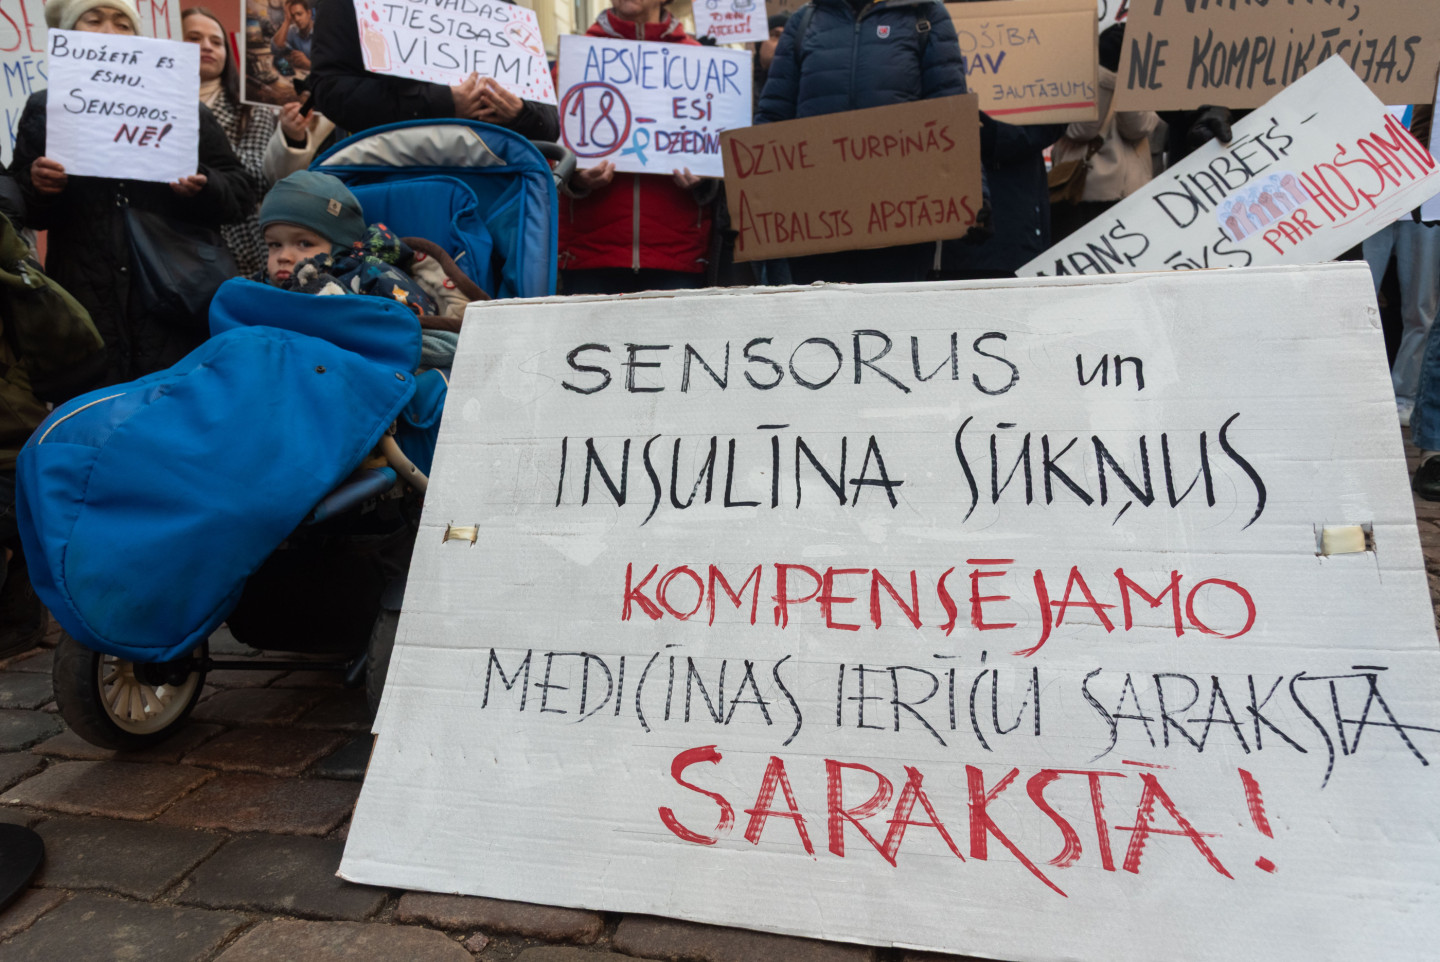 BUDŽETĀ ES
ESMU.
SENSOROS-
NĒ!
MĒS
TIESĪBAS
VISIEM!
APSVEICU AR
18
ESI
DZIEDINĀ
DZĪVE TURPINĀS
ATBALSTS APSTĀJAS
NAV
JAUTĀJUMS
NE KOMPLIKĀCIJAS
MANS DIABĒTS -
PAR HOŠAMU
SENSORUS un
INSULĪNA SŪKŅUS
KOMPENSĒJAMO
MEDICĪNAS IERĪČU SARAKSTĀ
SARAKSTĀ!